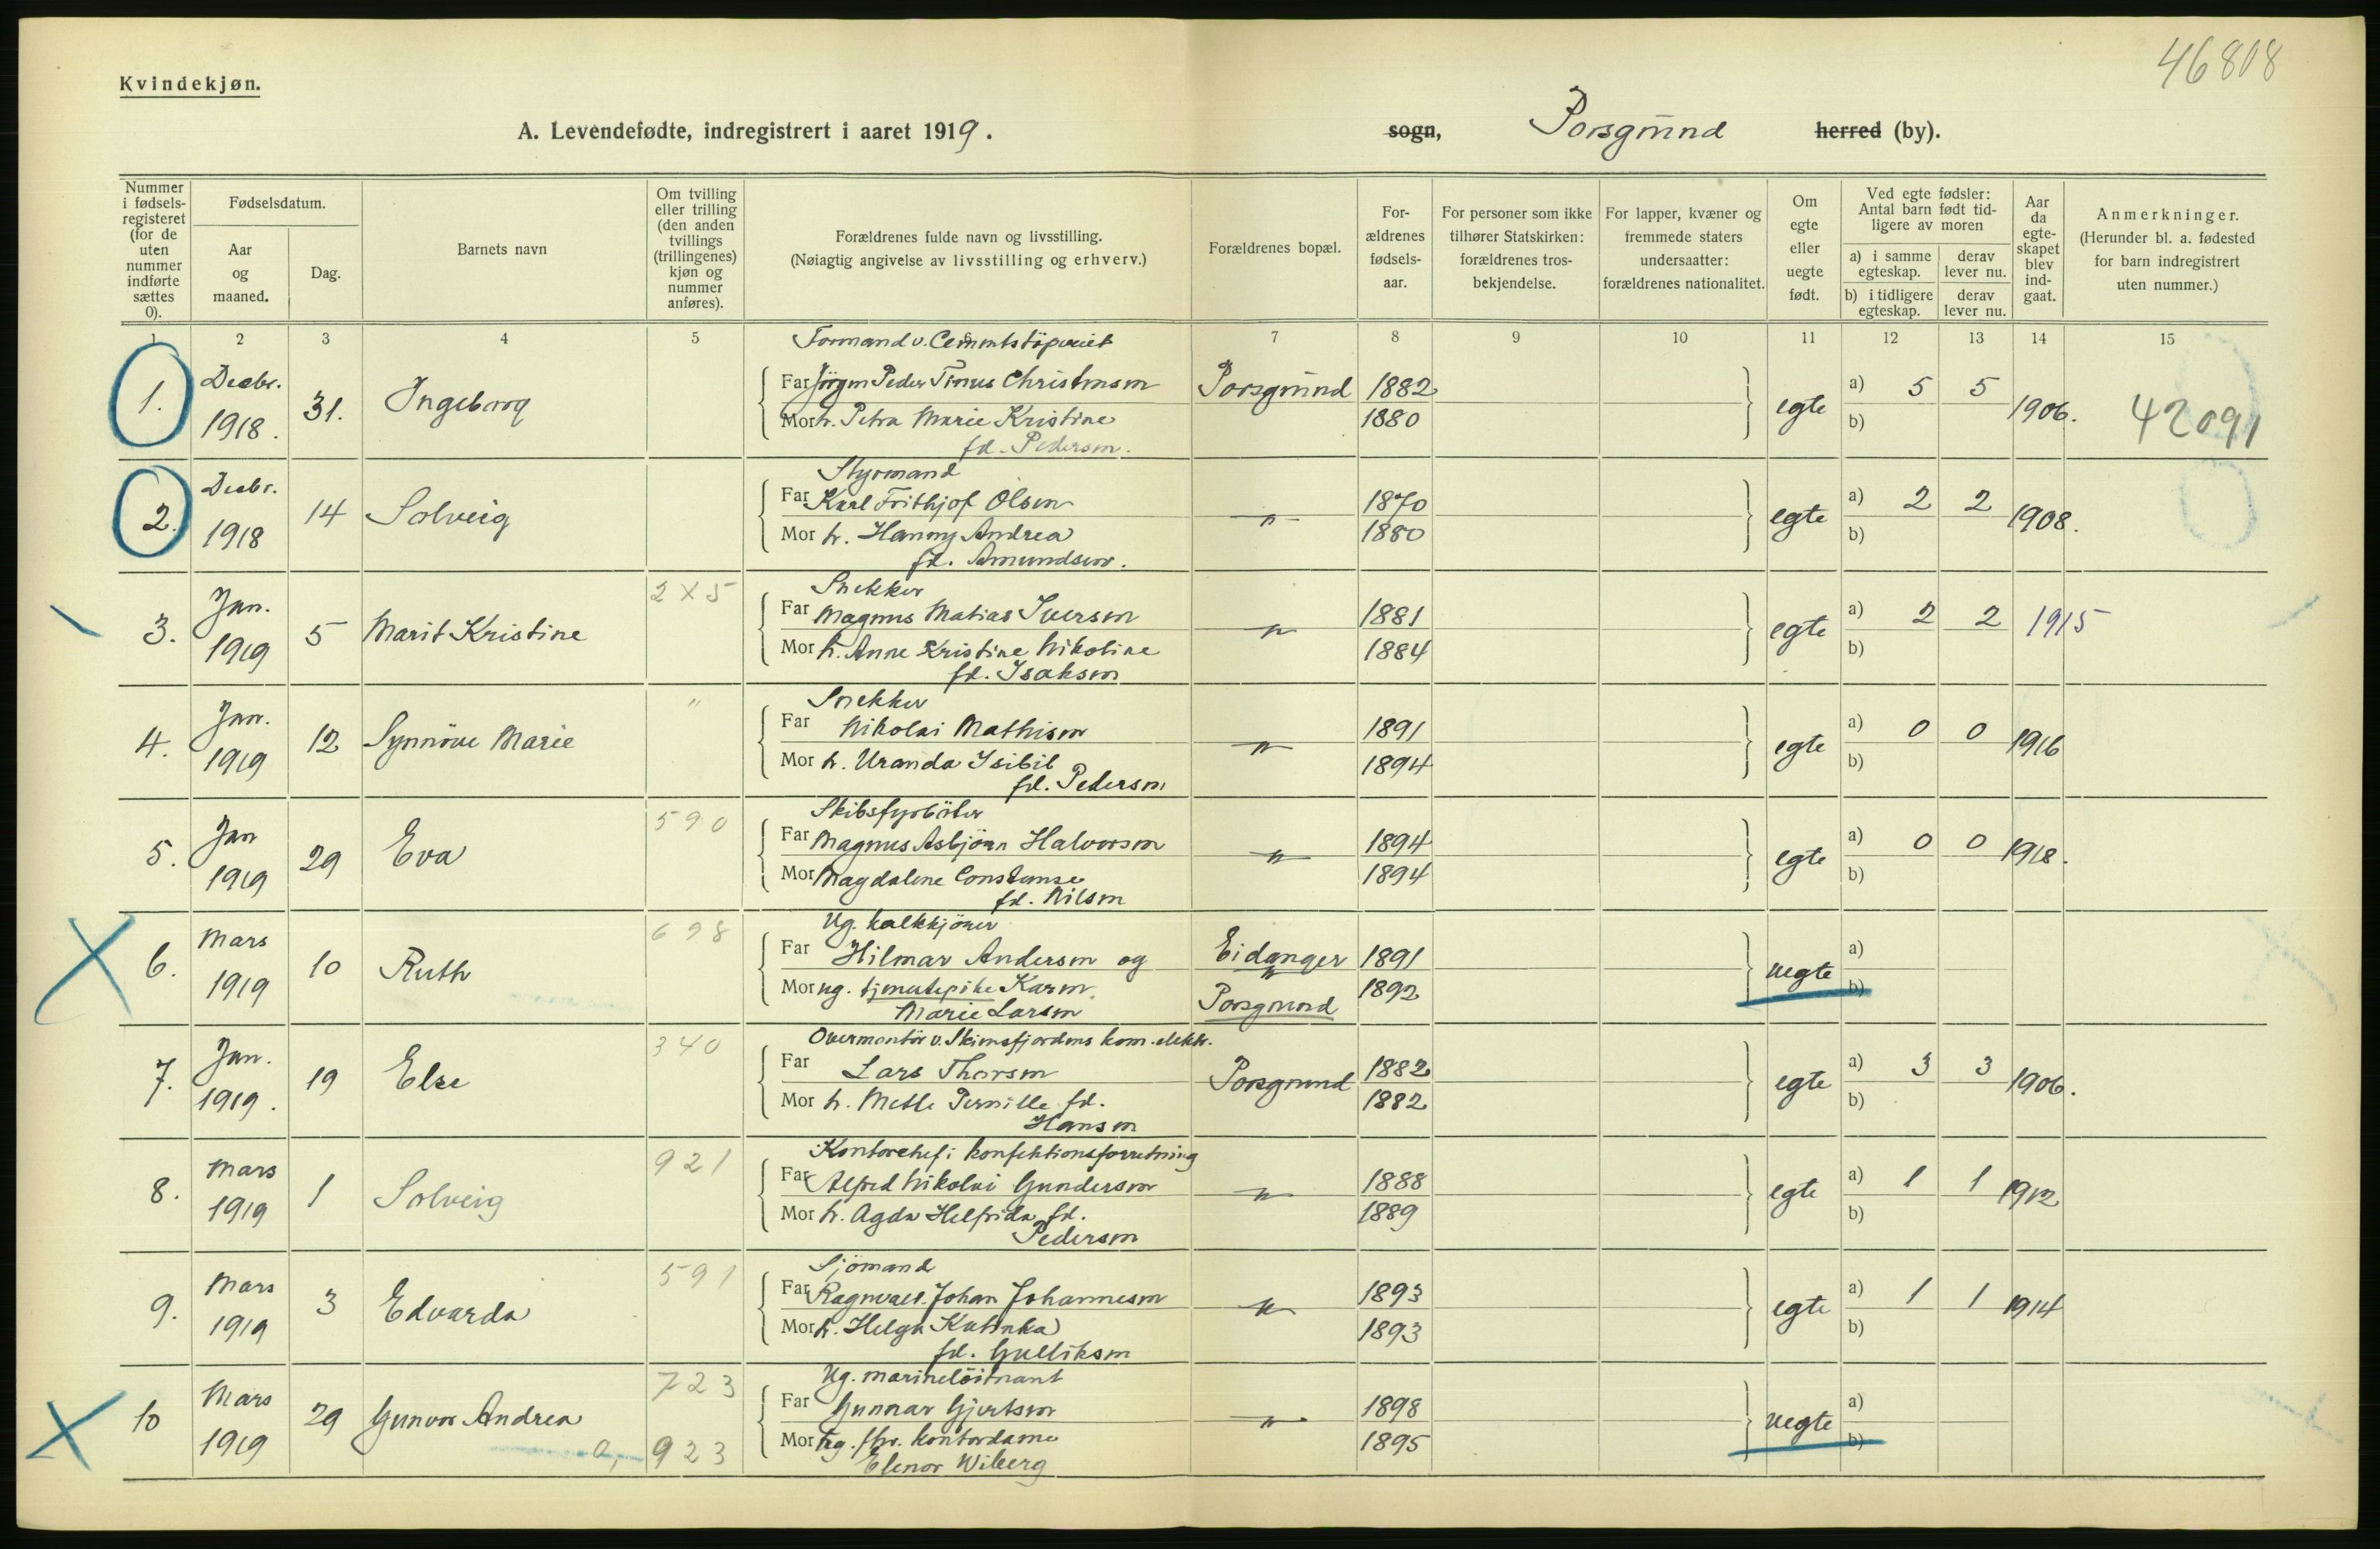 46808
Kvindekjøn.
A. Levendefødte, indregistrert i aaret 1919.
sogn, Porsgrund herred (by).
Nummer i fødsels-registeret (for de uten nummer indførte sættes 0).
Fødselsdatum.
Aar og maaned.
Dag.
Barnets navn
Om tvilling eller trilling (den anden tvillings (trillingenes) kjøn og nummer anføres).
Forældrenes fulde navn og livsstilling.
(Nøiagtig angivelse av livsstilling og erhverv.)
Forældrenes bopæl.
For-ældrenes fødsels-aar.
For personer som ikke tilhører Statskirken: forældrenes tros-bekjendelse.
For lapper, kvæner og fremmede staters undersaatter: forældrenes nationalitet.
Om egte eller uegte født.
Ved egte fødsler: Antal barn født tid-ligere av moren
a) i samme egteskap. derav lever nu.
b) i tidligere egteskap. derav lever nu.
Aar da egte-skapet blev ind-gaat.
Anmerkninger.
(Herunder bl. a. fødested for barn indregistrert uten nummer.)
1 2 3 4 5 7 8 9 10 11 12 13 14 15
Formand v. Cementstöperiet
1. Decbr. 1918. 31. Ingeborg
Far Jörgen Peder Tinus Christensen Porsgrund 1882
Mor h. Petra Marie Kristine 1880
fd. Pedersen.
egte a) 5 5 b) 1906. 42091
Styrmand
2. Decbr. 1918 14 Solveig
Far Karl Frithjof Olsen " 1870
Mor h. Hanny Andrea 1880
fd. Amundsen.
egte a) 2 2 b) 1908.
2 x 5 Snekker
3. Jan. 1919 5 Marit Kristine
Far Magnus Matias Iversen " 1881
Mor h. Anne Kristine Nikoline 1884
fd. Isaksen
egte a) 2 2 b) 1915
" Snekker
4. Jan. 1919 12 Synnöve Marie
Far Nikolai Mathisen " 1891
Mor h. Uranda Isibil 1894
fd. Pedersen
egte a) 0 0 b) 1916
590 Skibsfyrböter
5. Jan 1919 29 Eva
Far Magnus Asbjörn Halvorsen " 1894
Mor Magdalene Constanse 1894
fd. Nilsen
egte a) 0 0 b) 1918.
698 Ug. kalkkjörer
6. Mars 1919 10 Ruth
Far Hilmar Andersen og Eidanger 1891
Mor ug. tjenestepike Karen Porsgrund 1892
Marie Larsen
uegte a) b)
340 Overmontör v. Skiensfjordens kom. elektr.
7. Jan. 1919. 19 Else
Far Lars Thorsen Porsgrund 1882
Mor h. Mette Pernille fd. 1882
Hansen
egte a) 3 3 b) 1906.
921 Kontorchef i konfektionsforretning
8. Mars 1919 1 Solveig
Far Alfred Nikolai Gundersen " 1888
Mor h. Agda Helfrida fd. 1889
Pedersen
egte a) 1 1 b) 1912
591 Sjömand
9. Mars 1919 3 Edvarda
Far Ragnvald Johan Johannesen " 1893
Mor h. Helga Katinka 1893
fd. Gulliksen
egte a) 1 1 b) 1914
723 Ug. marinelöitnant
10 Mars 1919 29 Gunvor Andrea
Far Gunnar Gjertsen " 1898
923 Mor ug. kontordame 1895
Elenor Wiberg
uegte a) b)